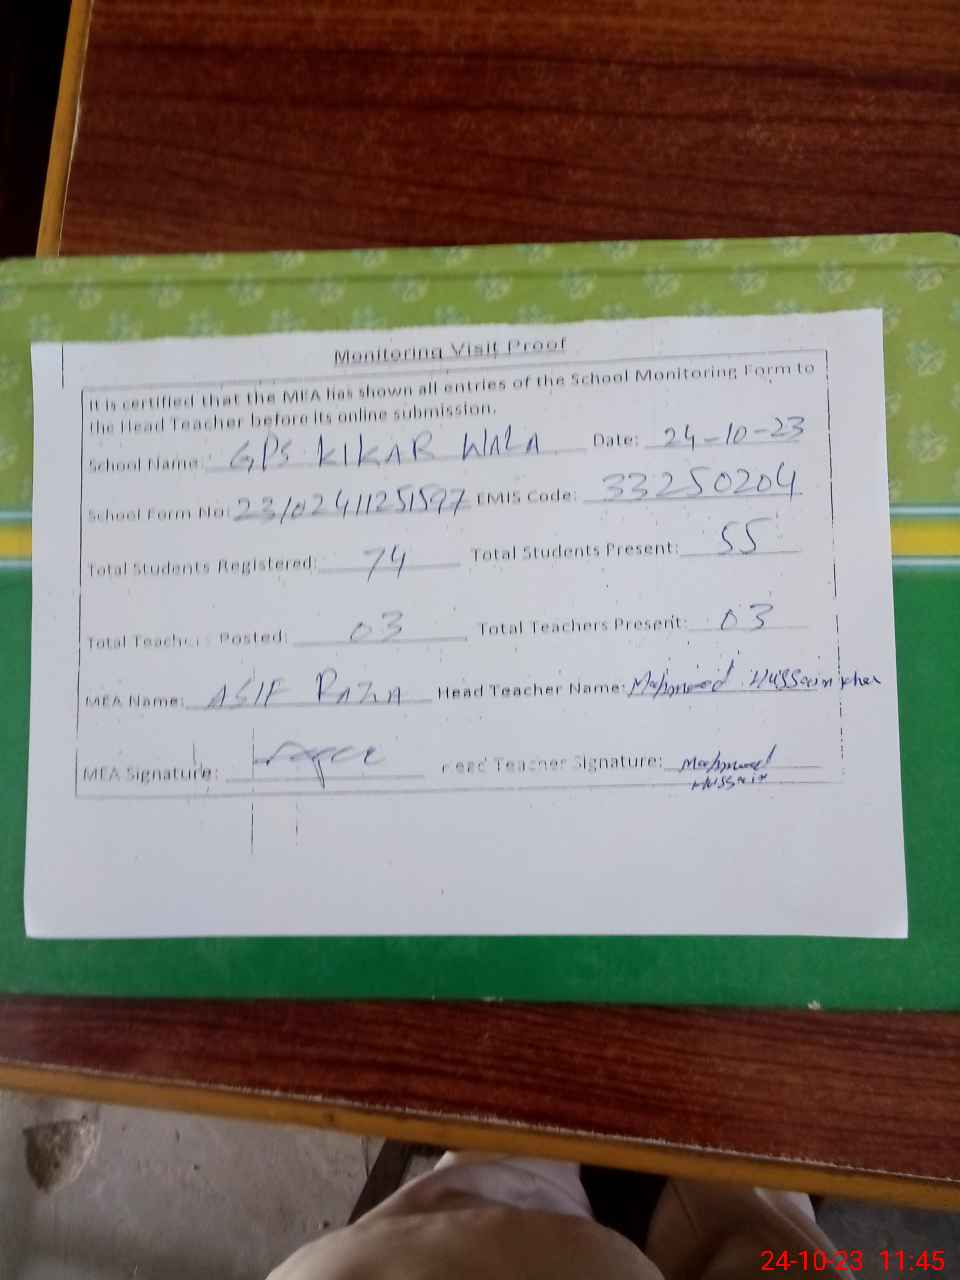 Monitoring Visit Proof
It is certified that the MEA has shown all entries of the School Monitoring Form to
the Head Teacher before its online submission.
School Name: GPS KIKAR WALA Date: 24-10-23
School Form No: 23102411251597 EMIS Code: 33250204
Total Students Registered: 74 Total Students Present: 55
Total Teachers Posted: 03 Total Teachers Present: 03
MEA Name: ASIF RAZA Head Teacher Name: Mahmood Hussain
MEA Signature: Head Teacher Signature: Mahmood
Hussain
24-10-23 11:45